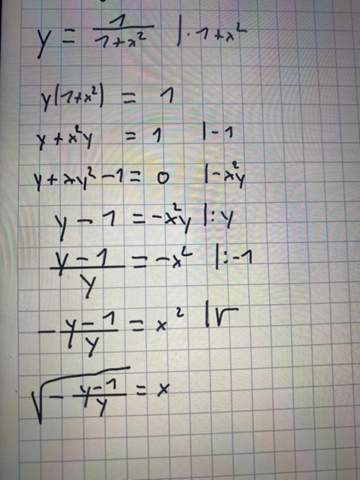 y = 1/(1+x²) | · 1+x²
y(1+x²) = 1
y + x²y = 1 | -1
y + xy² - 1 = 0 | -x²y
y - 1 = -x²y | : y
(y-1)/y = -x² | : -1
-(y-1)/y = x² | √
√(-(y-1)/y) = x